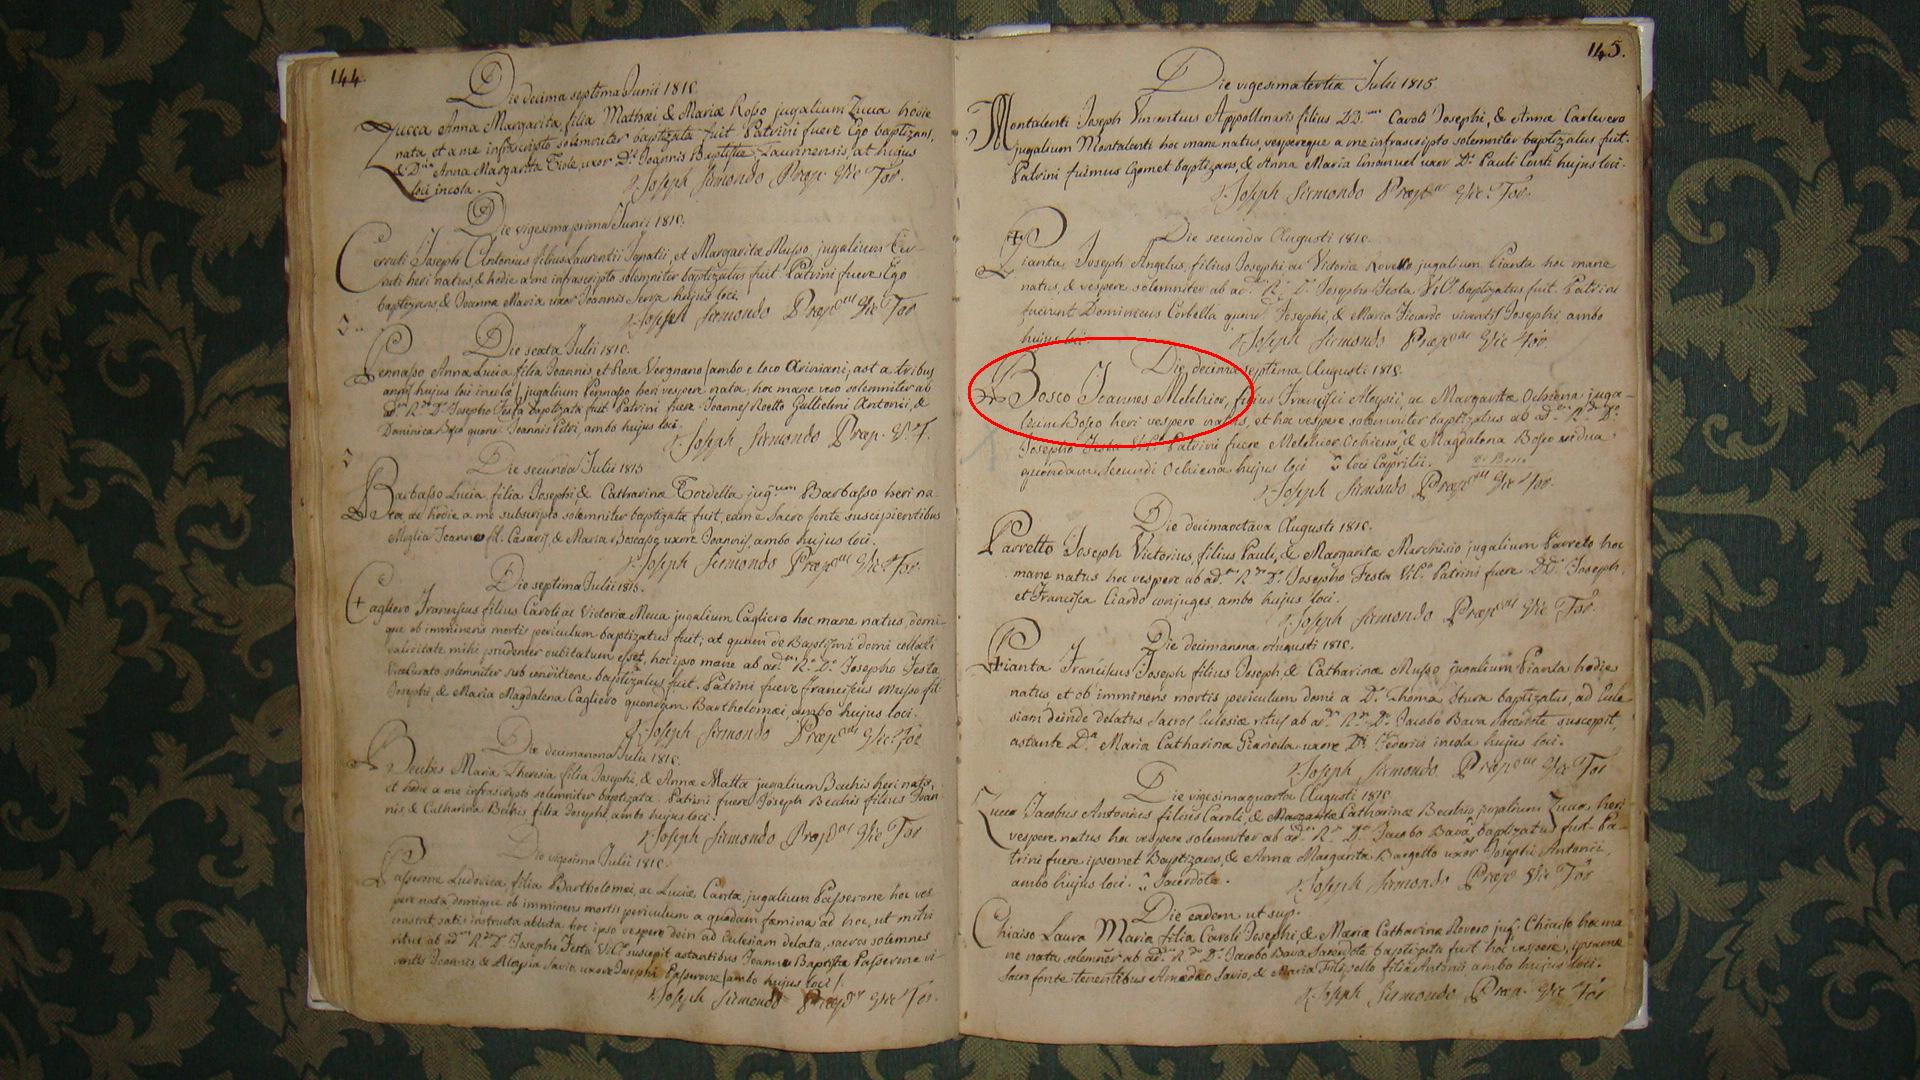 144.
Die decima septima Junii 1815.
Zucca Anna Margarita, filia Mathæi & Mariæ Rosso jugalium Zucca hodie
nata, et a me infrascripto solemniter baptizata fuit Patrini fuere Ego baptizans,
& D.na Anna Margarita uxor D.i Joannis Baptistæ Taurinensis, at hujus
loci incola.
Joseph Sismondo Præp. Vic. For.
Die vigesima prima Junii 1815.
Ceruti Joseph Antonius filius Laurentii Ignatii, et Margaritæ Musso jugalium Ce-
ruti heri natus, & hodie a me infrascripto solemniter baptizatus fuit Patrini fuere Ego
baptizans, & Joanna Maria uxor Joannis Serra hujus loci.
Joseph Sismondo Præp.tus Vic. For
Die sexta Julii 1815.
Pennasso Anna Lucia filia Joannis, et Rosa Vergnano ambo e loco Ariniani, ast a tribus
annis hujus loci incolæ jugalium Pennasso heri vespere nata, hoc mane vero solemniter ab
ad.m R.do D. Josepho Festa baptizata fuit Patrini fuere Joannes Roetto Gullielmi Antonii, &
Dominica Bosco quond. Joannis Petri, ambo hujus loci.
Joseph Sismondo Præp. V. F.
Die secunda Julii 1815
Barbasso Lucia filia Josephi, & Catharinæ Tordella jug.um Barbasso heri na-
ta ac hodie a me subscripto solemniter baptizata fuit, eam e Sacro fonte suscipientibus
Miglia Joanne fil. Cæsaris, & Maria uxore Joannis, ambo hujus loci.
Joseph Sismondo Præp.tus Vic. For.
Die septima Julii 1815.
Cagliero Franciscus filius Caroli ac Victoriæ Mucca jugalium Cagliero hoc mane natus, domi-
que ob imminens mortis periculum baptizatus fuit; at quum de Baptismi domi collati
validitate mihi prudenter dubitatum esset, hoc ipso mane ab ad.m R.do D. Josepho Festa
Vicecurato solemniter sub conditione baptizatus fuit. Patrini fuere Franciscus Musso fil.
Josephi, & Maria Magdalena Cagliero quondam Bartholomæi, ambo hujus loci.
Joseph Sismondo Præp.tus Vic. For
Die decimanona Julii 1815.
Bechis Maria Theresia filia Josephi, & Annæ Matta jugalium Bechis heri nata,
et hodie a me infrascripto solemniter baptizata. Patrini fuere Joseph Bechis filius Joan-
nis & Catharina Bechis filia Josephi, ambo hujus loci.
Joseph Sismondo Præp.tus Vic. For
Die vigesima Julii 1815.
Passerone Ludovica, filia Bartholomæi, ac Luciæ Canta, jugalium Passerone hoc ves-
pere nata domique ob imminens mortis periculum a quadam fæmina ad hoc, ut mihi
constat satis instructa abluta hoc ipso vespere dein ad Ecclesiam delata, sacros solemnes
ritus ab ad.m R.do D. Josepho Festa Vic.o suscepit astantibus Joanne Baptista Passerone vi-
ventis Joannis, & Aloysia Savio, uxore Josephi Passerone ambo hujus loci.
Joseph Sismondo Præp.us Vic. For.
145.
Die vigesima tertia Julii 1815
Montalenti Joseph Vincentius Appollinaris filius DD. Caroli Josephi, & Annæ Carlevero
jugalium Montalenti hoc mane natus, vespereque a me infrascripto solemniter baptizatus fuit.
Patrini fuimus Egomet baptizans, & Anna Maria Emanuel uxor D.i Pauli Conti hujus loci.
Joseph Sismondo Præp.us Vic. For.
Die secunda Augusti 1815.
Pianta Joseph Angelus, filius Josephi, ac Victoriæ Rovero jugalium Pianta hoc mane
natus, & vespere solemniter ab ad.m R.do D. Josepho Festa Vic.o baptizatus fuit. Patrini
fuerunt Dominicus Corbella quond. Josephi, & Maria Ficardo viventis Josephi ambo
hujus loci.
Joseph Sismondo Præp.tus Vic. For
Die decima septima Augusti 1815.
Bosco Joannes Melchior, filius Francisci Aloysii, ac Margaritæ Ochiena juga-
lium Bosco heri vespere natus, et hoc vespere solemniter baptizatus ab ad.m R.do D.
Josepho Festa Vic.o Patrini fuere Melchior Ochiena, & Magdalena Bosco vidua
quondam Secundi Ochiena hujus loci loci Caprilii.
Joseph Sismondo Præp.tus Vic. For.
Die decimaoctava Augusti 1815.
Pavretto Joseph Victorius, filius Pauli, & Margaritæ Marchisio jugalium Pavreto hoc
mane natus hoc vespere ab ad.m R.do D. Josepho Festa Vic.o Patrini fuere DD. Joseph,
et Francisca Ciardo conjuges, ambo hujus loci.
Joseph Sismondo Præp.tus Vic. For.
Die decimanona Augusti 1815.
Pianta Franciscus Joseph filius Joseph, & Catharinæ Musso jugalium Pianta hodie
natus et ob imminens mortis periculum domi a D. Thoma Stura baptizatus, ad Eccle-
siam deinde delatus Sacros Ecclesiæ ritus ab ad.m R.do D. Jacobo Bava Sacerdote suscepit,
astante D.a Maria Catharina uxore D.i Federici incola hujus loci.
Joseph Sismondo Præp.tus Vic. For
Die vigesimaquarta Augusti 1815
Zucca Jacobus Antonius filius Caroli, & Catharinæ Bechio, jugalium Zucca, heri
vespere natus hoc vespere solemniter ab ad.m R.do D. Jacobo Bava baptizatus fuit. Pa-
trini fuere ipsemet Baptizans, & Anna Margarita Bargetto uxor Josephi Antonii,
ambo hujus loci. Sacerdote.
Joseph Sismondo Præp. Vic. For
Die eadem ut sup.
Chiaiso Laura Maria filia Caroli Josephi, & Maria Catharinæ Rovero jug. Chiaiso hoc ma-
ne nata solemñer ab ad.m R.do D. Jacobo Bava Sacerdote baptizata fuit hoc vespere, ipsamque
sacro fonte tenentibus Amedeo Savio, & Maria Filipello filia Antonii ambo hujus loci.
Joseph Sismondo Præp. Vic. For